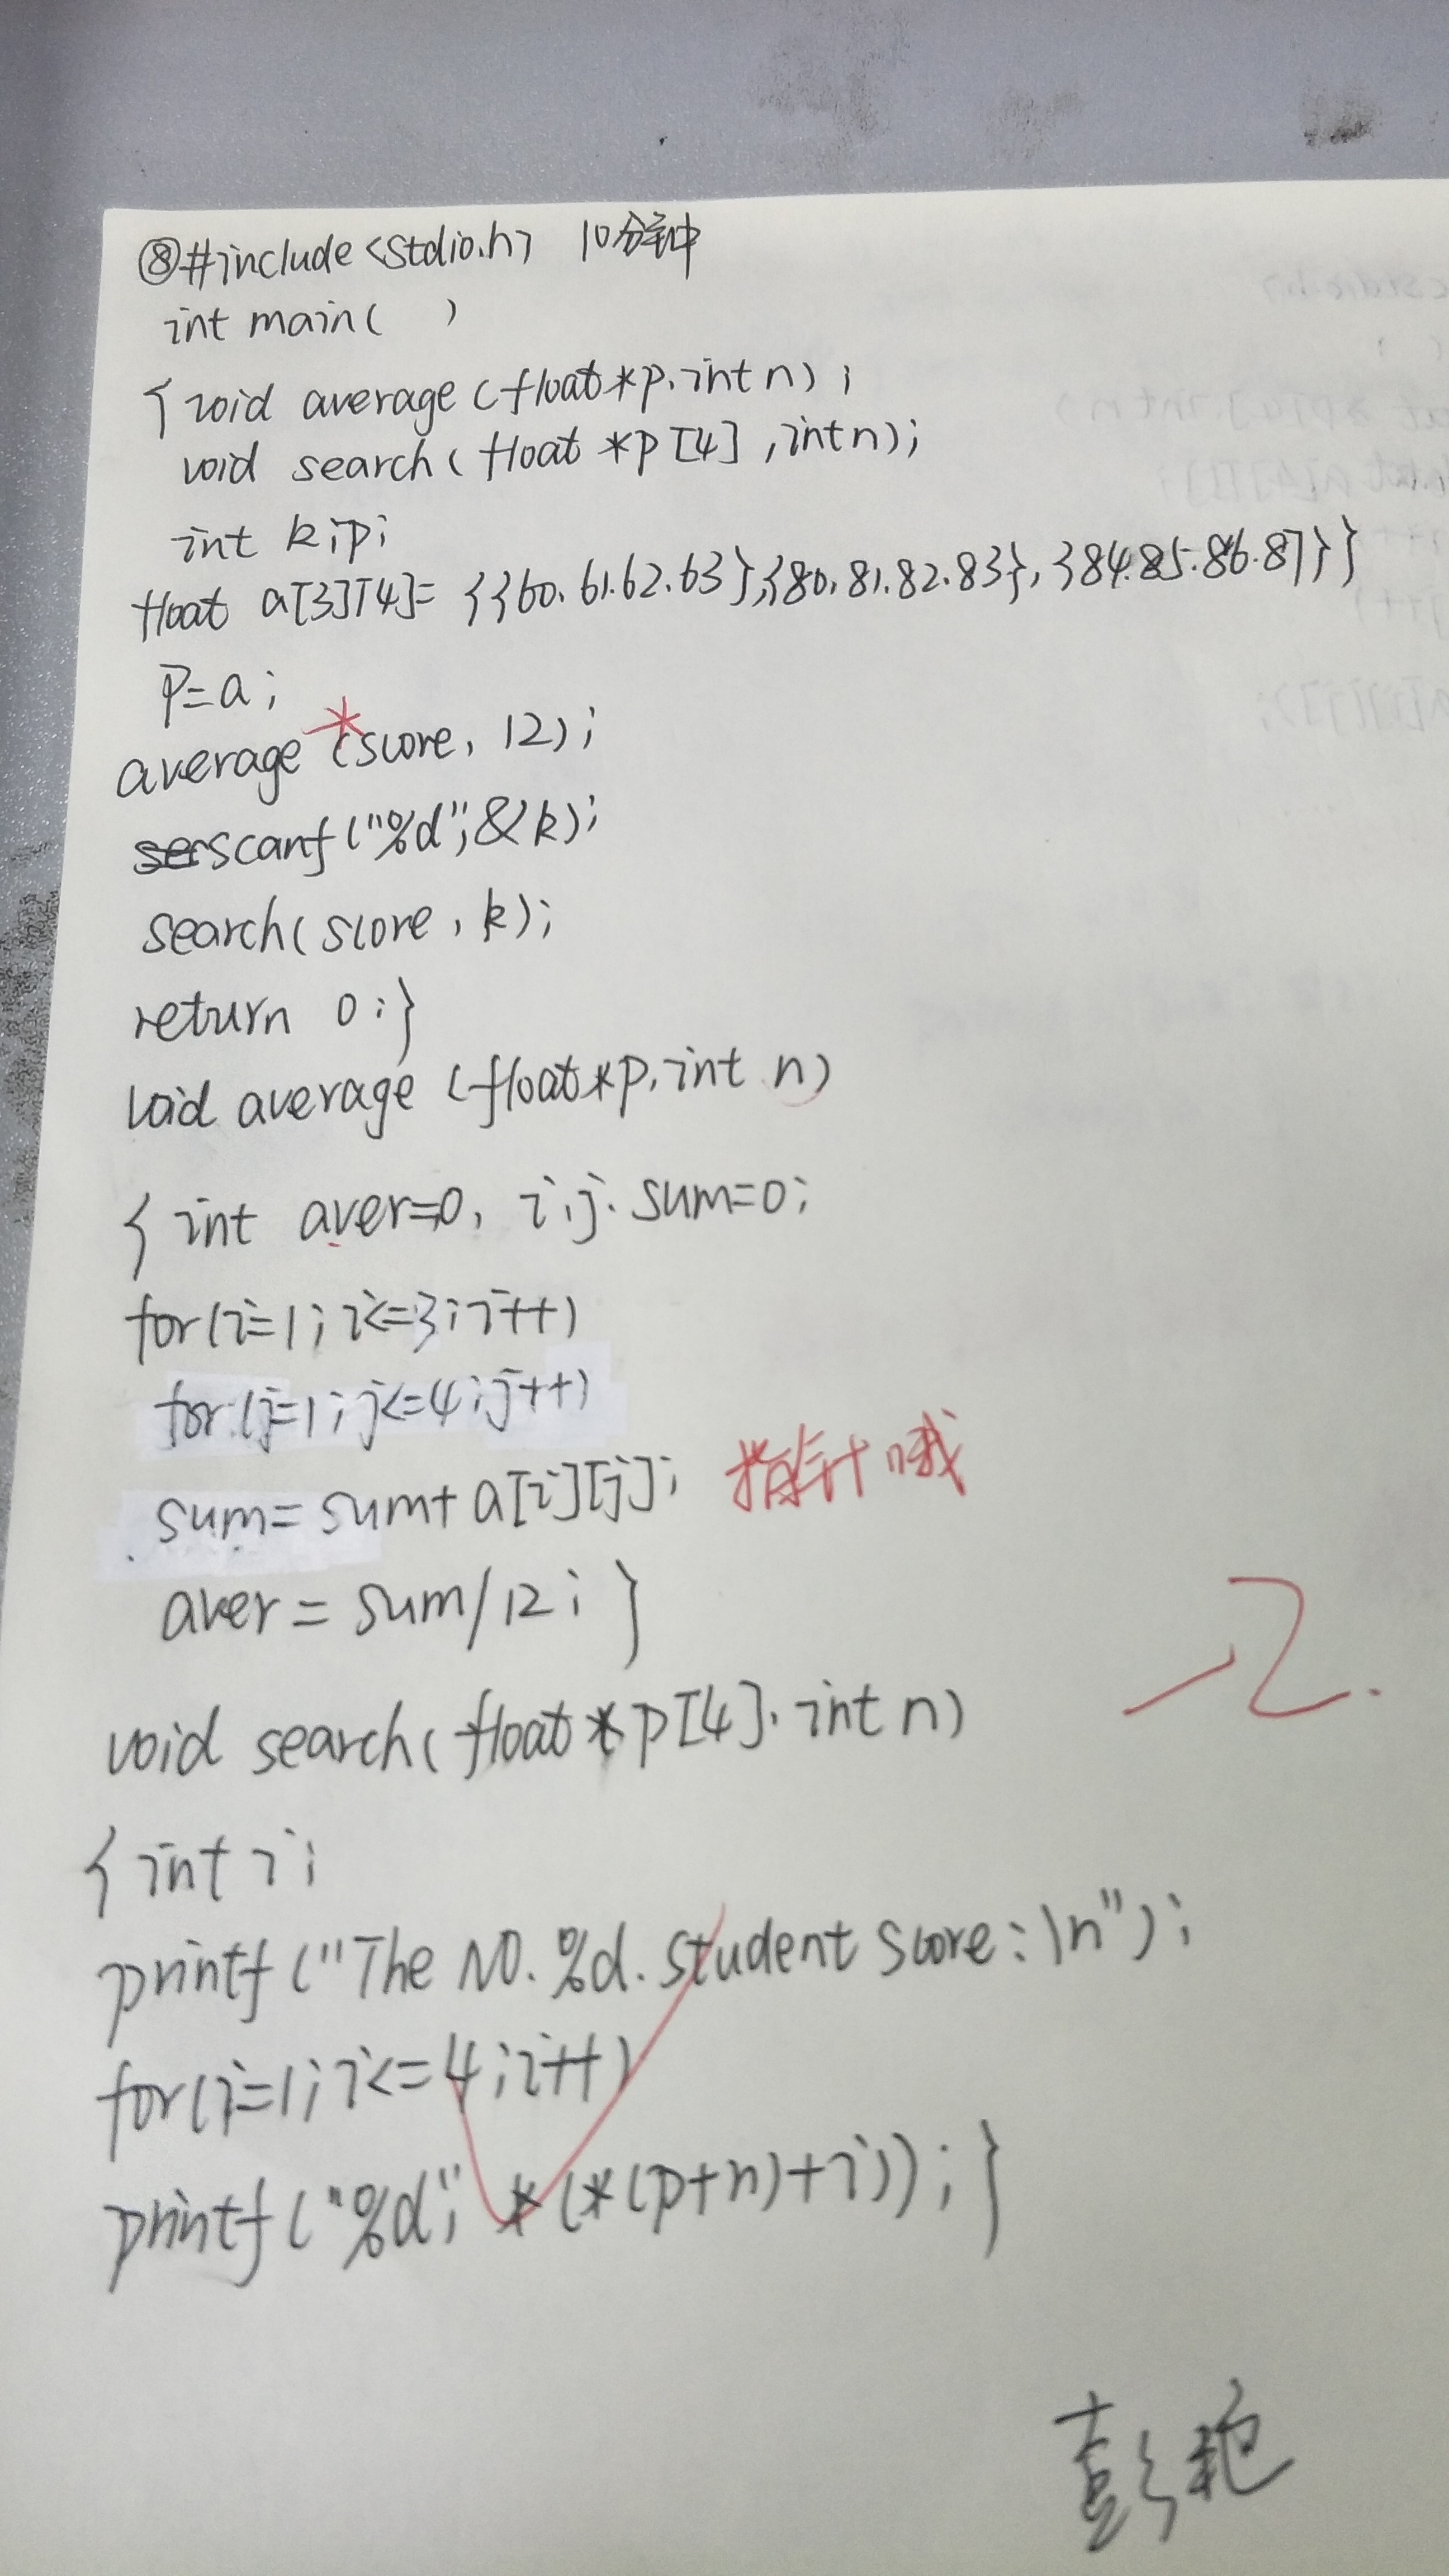 ⑧#include<stdio.h> 10分钟
int main( )
{void average(float*p,int n);
void search(float *p[4],int n);
int k;p;
float a[3][4]={{60.61.62.63},{80.81.82.83},{84.85.86.87}}
P=a;
average *(score, 12);
scanf("%d",&k);
search(score, k);
return 0;}
void average(float*p,int n)
{int aver=0, i,j. sum=0;
for(i=1;i<=3;i++)
for(j=1;j<=4;j++)
sum=sum+a[i][j]; 指针哦
aver=sum/12;}
-2.
void search(float*p[4],int n)
{int i;
printf("The NO.%d.student score:\n");
for(i=1;i<=4;i++)
printf("%d",*(*(p+n)+i));}
彭艳